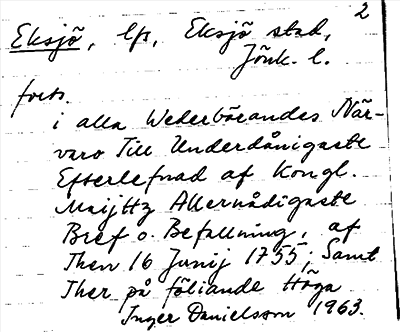 2
Eksjö, lfs, Eksjö stad,
Jönk. l.
forts.
i alla Wederböeandes När-
varo Till Underdånigaste
Efterlefnad af Kongl.
Maijttz Allernådigaste
Bref o. Befallning, af
Then 16 Junij 1755; Samt
Ther på föliande Höga
Inger Danielsson 1963.